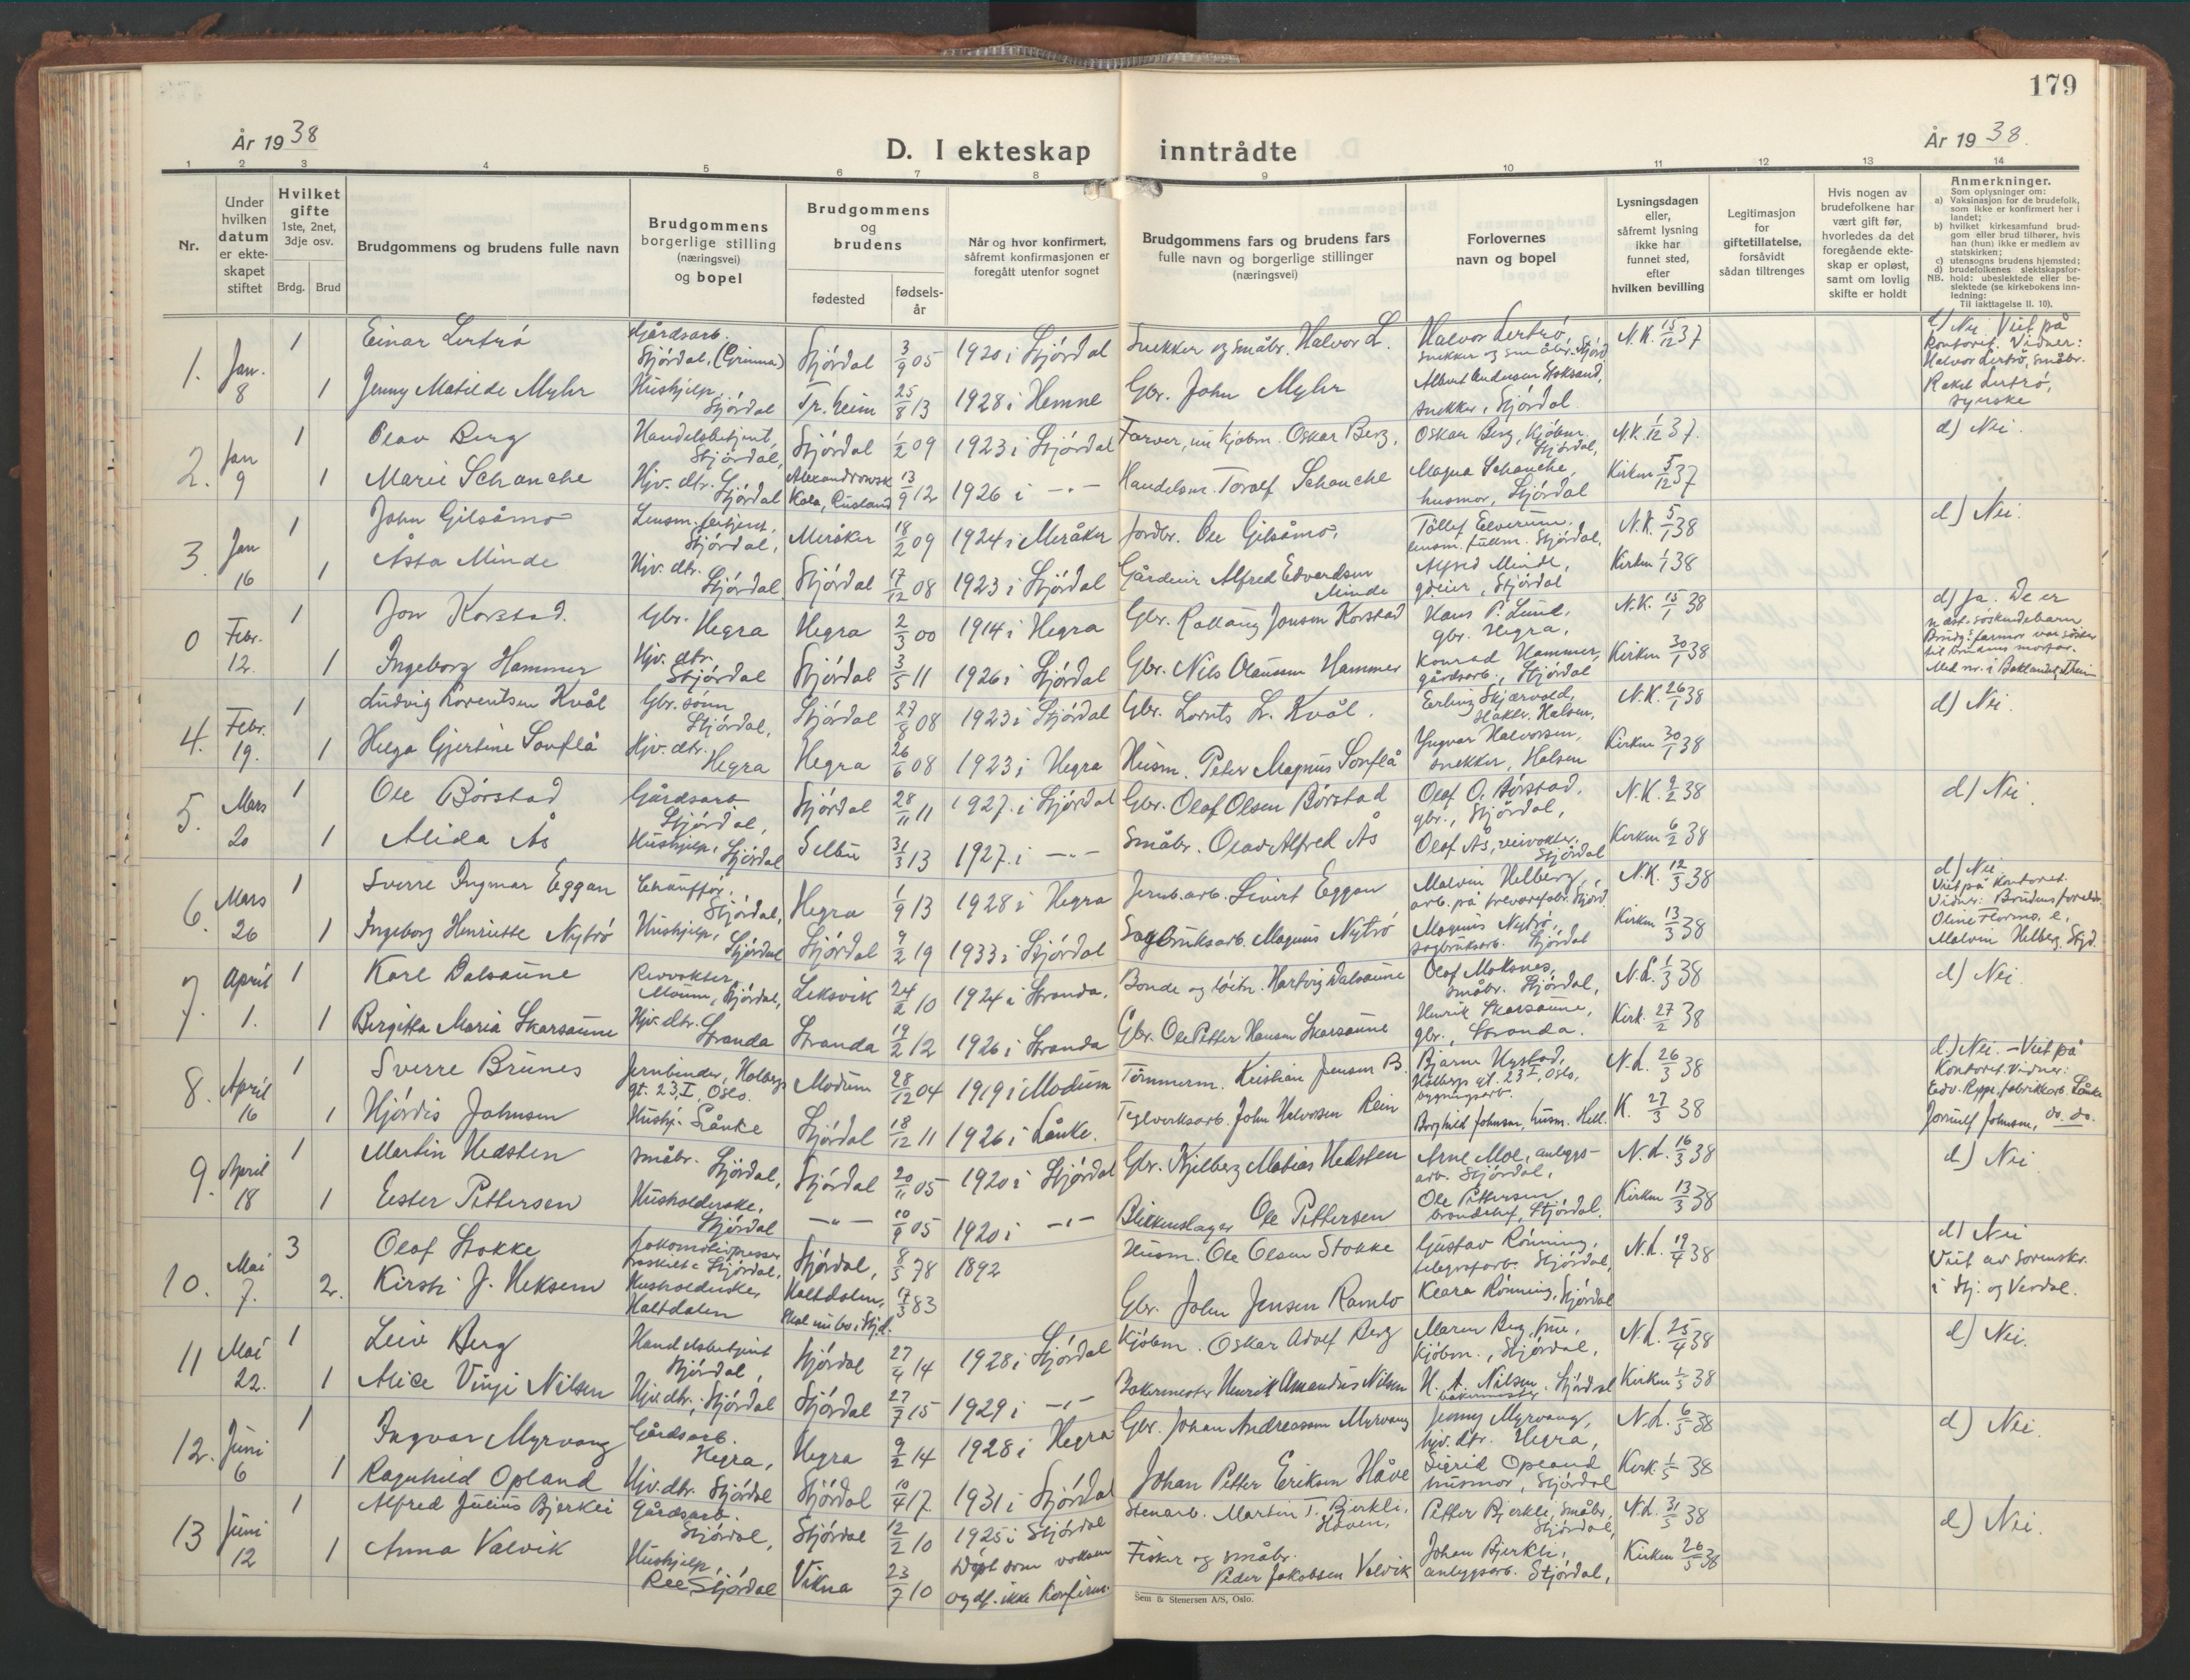 179
År 1938
D. I ekteskap inntrådte
År 1938.
1 2 3 4 5 6 7 8 9 10 11 12 13 14
Nr.
Under hvilken datum er ekteskapet stiftet
Hvilket gifte 1ste, 2net, 3dje osv.
Brdg. Brud
Brudgommens og brudens fulle navn
Brudgommens borgerlige stilling (næringsvei) og bopel
Brudgommens og brudens
fødested
fødselsår
Når og hvor konfirmert, såfremt konfirmasjonen er foregått utenfor sognet
Brudgommens fars og brudens fars fulle navn og borgerlige stillinger (næringsvei)
Forlovernes navn og bopel
Lysningsdagen eller, såfremt lysning ikke har funnet sted, efter hvilken bevilling
Legitimasjon for giftetillatelse, forsåvidt sådan tiltrenges
Hvis nogen av brudefolkene har vært gift før, hvorledes da det foregående ekteskap er opløst, samt om lovlig skifte er holdt
Anmerkninger.
Som oplysninger om:
a) Vaksinasjon for de brudefolk, som ikke er konfirmert her i landet;
b) hvilket kirkesamfund brudgom eller brud tilhører, hvis han (hun) ikke er medlem av statskirken;
c) utensogns brudens hjemsted;
d) brudefolkenes slektskapsforhold: ubeslektede eller beslektede (se kirkebokens innledning:
NB. Til iakttagelse II. 10).
1. Jan. 8 1 Einar Lertrö Gårdsarb. Stjördal. (Grinna) Stjördal 3/9 05 1920 i Stjördal Snekker og småbr. Halvor L. Halvor Lertrö, snekker og småbr. Stjörd. N.K. 15/12 37 d) Nei Viet på kontoret. Vidner: Halvor Lertrö, småbr.
1 Jenny Matilde Myhr Hushjelp, Stjördal Tr.heim 25/8 13 1928 i Hemne Gbr. John Myhr Albert Andersen Stoksand, snekker, Stjördal Rakel Lertrö, syerske
2. Jan 9 1 Olav Berg Handelsbetjent, Stjördal, Stjördal 1/2 09 1923 i Stjördal Farver, nu kjöbm. Oskar Berg. Oskar Berg, kjöbm. Stjördal, N.K. 1/12 37. d) Nei.
1 Marie Schanche Hjv. dtr. Stjördal Alexandrowsk Kola, Rusland 13/9 12 1926 i -"- Handelsm. Toralf Schanche Magna Schanche, husmor, Stjördal Kirken 5/12 37
3. Jan 16 1 John Gilsåmo Lensm. betjent, Stjördal, Meråker 18/2 09 1924 i Meråker Jordbr. Ole Gilsåmo, Tollef Elverum, lensm. fullm. Stjördal, N.K. 5/1 38 d) Nei.
1 Åsta Minde Hjv. dtr. Stjördal Stjördal 17/12 08 1923 i Stjördal Gårdeier Alfred Edvardsen Minde Alfred Minde, gdeier, Stjördal Kirken 1/1 38
0 Febr. 12. 1 Jon Korstad. Gbr. Hegra Hegra 2/3 00 1914 i Hegra Gbr. Rollaug Jonsen Korstad Hans P. Lund, gbr. Hegra, N.K. 15/1 38 d) Ja. De er næst-söskendebarn. Brudg.s farmor var söster til brudens morfar.
1 Ingeborg Hammer Hjv. dtr. Stjördal Stjördal 3/5 11 1926 i Stjördal Gbr. Nils Olaussen Hammer Konrad Hammer, gårdsarb., Stjördal Kirken 30/1 38 Med nr. i Baklandet, Theim
4. Febr. 19. 1 Ludvig Lorentsen Kvål Gbr. sönn Stjördal, Stjördal 27/8 08 1923 i Stjördal Gbr. Lornts L. Kvål. Erling Skjærvold, slakter. Halsen, N.K. 26/1 38 d) Nei
1 Helga Gjertine Sonflå Hjv. dtr. Hegra Hegra 26/6 08 1923 i Hegra Husm. Peter Magnus Sonflå Yngvar Halvorsen, snekker, Halsen Kirken 30/1 38
5. Mars 20 1 Ole Börstad Gårdsarb. Stjördal, Stjördal 28/11 11 1927. i Stjördal Gbr. Olaf Olsen Börstad Olaf O. Börstad, gbr., Stjördal, N.K. 2/2 38 d) Nei.
1 Alida Ås Hushjelp, Stjördal Selbu 31/3 13 1927. i -"- Småbr. Olav Alfred Ås Olaf Ås, veivokter, Stjördal Kirken 6/2 38
6. Mars 26 1 Sverre Ingmar Eggan Chaufför. Stjördal, Hegra 1/9 13 1928 i Hegra Jernb.arb. Sivert Eggan Malvin Helberg, arb. på trevarefabr. Stjörd. N.K. 12/3 38 d) Nei. Viet på kontoret. Vidner: Brudens foreldr.
1 Ingeborg Henriette Nytrö Hushjelp, Stjördal Stjördal 9/2 19 1933 i Stjördal Sagbruksarb. Magnus Nytrö Magnus Nytrö, sagbruksarb. Stjördal Kirken 13/3 38 Malvin Helberg, Stjd.
7. April 1. 1 Karl Dalsaune Revvokter, Moum, Stjördal, Leksvik 24/2 10 1924 i Stranda. Bonde og löitn. Hartvig Dalsaune Olaf Moksnes, småbr. Stjördal, N.L. 1/3 38 d) Nei.
1 Bergitta Maria Skarsaune Hjv. dtr. Stranda Stranda 19/2 12 1926 i Stranda Gbr. Ole Petter Hansen Skarsaune Henrik Skarsaune, gbr., Stranda. Kirk. 27/2 38
8. April 16 1 Sverre Brunes Jernbinder, Holbergs gt. 23, I, Oslo. Modum 28/12 04 1919 i Modum Tömmerm. Kristian Jensen B. Bjarne Nystad, Holbergs gt. 23 I, Oslo, bygningsarb. N.L. 26/3 38 d) Nei. - Viet på kontoret. Vidner: Edv. Rype, fabrikkarb. Lånke
1 Hjördis Johnsen Hushj. Lånke Stjördal 18/12 11 1926 i Lånke. Teglverksarb. John Halvorsen Rein Borghild Johnsen, husm. Hell. K. 27/3 38 Jörnulf Johnsen, do. do.
9. April 18 1 Martin Hedsten småbr. Stjördal, Stjördal 20/11 05 1920 i Stjördal Gbr. Kjelberg Matias Hedsten Arne Moe, anleggsarb. Stjördal, N.L. 16/3 38 d) Nei
1 Ester Pettersen Husholderske, Stjördal -"- 10/9 05 1920 i -"- Blikkenslager Ole Pettersen Ole Pettersen, brandchef, Stjördal. Kirken 13/3 38
10. Mai 7. 3 Olaf Stokke Lokomotivpusser fraskilt Stjördal, Stjördal, 8/5 78 1892 Husm. Ole Olsen Stokke Gustav Rönning, telegrafarb. Stjördal, N.L. 19/4 38 d) Nei Viet av sorenskr. i Stj. og Verdal.
2. Kirsti J. Heksem Husholderske, Haltdalen Haltdalen, Skal nu bo i Stjd. 17/3 83 Gbr. John Jensen Ramlo Klara Rönning, Stjördal
11 Mai 22. 1 Leiv Berg Handelsbetjent Stjördal, Stjördal 27/4 14 1928 i Stjördal Kjöbm. Oskar Adolf Berg Maren Berg, frue, kjöbm., Stjördal, N.L. 25/4 38 d) Nei.
1 Alice Vingi Nilsen Hjv. dtr., Stjördal Stjördal 27/7 15 1929 i -"- Bakermester Henrik Amandus Nilsen H. A. Nilsen, bakermester. Stjördal Kirken 1/5 38
12. Juni 6 1 Ingvar Myrvang Gårdsarb. Hegra, Hegra 9/2 14 1928 i Hegra Gbr. Johan Andreassen Myrvang Jenny Myrvang, hjv. dtr. Hegra, N.L. 6/5 38 d) Nei.
1 Ragnhild Opland Hjv. dtr. Stjördal Stjördal 10/4 17 1931 i Stjördal Johan Petter Eriksen Håve Sigrid Opland husmor, Stjördal Kirk. 1/5 38
13 Juni 12 1 Alfred Julius Bjerkli Gårdsarb. Stjördal, Stjördal 12/2 10 1925 i Stjördal Stenarb. Martin T. Bjerkli, Håven, Petter Bjerkli, småbr. Stjördal, N.L. 31/5 38 d) Nei.
1 Anna Valvik Hushjelp, Ree, Stjördal Vikna 23/7 10 Döpt som voksen og df. ikke konfirm. Fisker og småbr. Peder Jakobsen Valvik Johan Bjerkli, anleggsarb. Stjördal, Kirken 26/5 38
Sem & Stenersen A/S, Oslo.